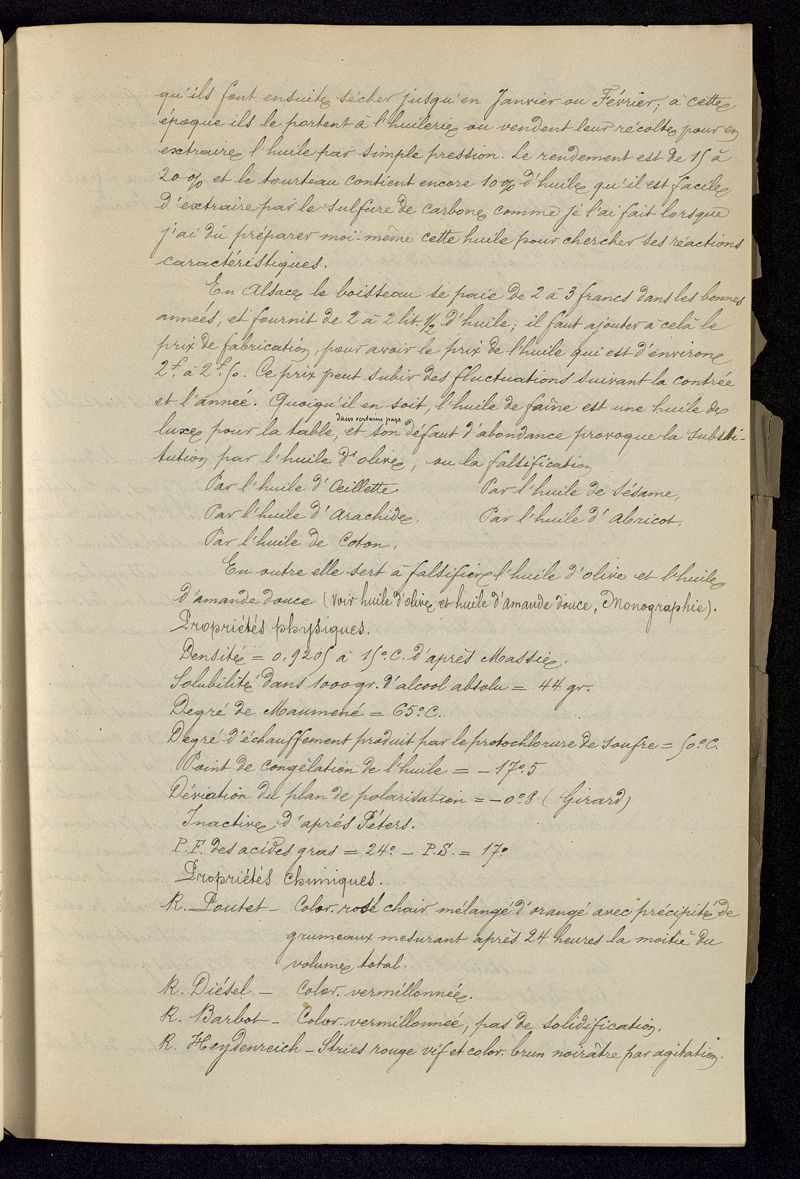 qu'ils font ensuite sécher jusqu'en Janvier ou Février; à cette
époque ils le portent à l'huilerie ou vendent leur récolte pour en
extraire l'huile par simple pression. Le rendement est de 15 à
20% et le tourteau contient encore 10% d'huile qu'il est facile
d'extraire par le sulfure de carbone comme je l'ai fait lorsque
j'ai dû préparer moi-même cette huile pour chercher ses réactions
caractéristiques.
En Alsace le boisseau se paie de 2 à 3 francs dans les bonnes
années, et fournit de 2 à 2 lit ½ d'huile; il faut ajouter à celà le
prix de fabrication, pour avoir le prix de l'huile qui est d'environ
2f. à 2f.50. Ce prix peut subir des fluctuations suivant la contrée
et l'année. Quoiqu'il en soit, l'huile de faîne est une huile de
dans certains pays
luxe pour la table, et son défaut d'abondance provoque la substi-
tution par l'huile d'olive, ou la falsification
Par l'huile d'Œillette Par l'huile de Sésame,
Par l'huile d'Arachide, Par l'huile d'Abricot,
Par l'huile de Coton,
En outre elle sert à falsifier l'huile d'olive et l'huile
d'amande douce (Voir huile d'olive et huile d'amande douce, Monographie).
Propriétés physiques.
Densité = 0,9205 à 15°C. d'après Massie.
Solubilité dans 1000gr. d'alcool absolu = 44 gr.
Degré de Maumené = 65°C.
Degré d'échauffement produit par le protochlorure de soufre = 50°C.
Point de congélation de l'huile = -17°5
Déviation du plan de polarisation = -0°8 (Girard)
Inactive d'après Péters.
P.F. des acides gras = 24° - P.S. = 17°
Propriétés Chimiques.
R. Poutet - Color. rosé chair mélangé d'orangé avec précipité de
grumeaux mesurant après 24 heures la moitié du
volume total.
R. Diésel - Color. vermillonnée.
R. Barbot - Color. vermillonnée, pas de solidification.
R. Heydenreich - Stries rouge vif et color. brun noirâtre par agitation.